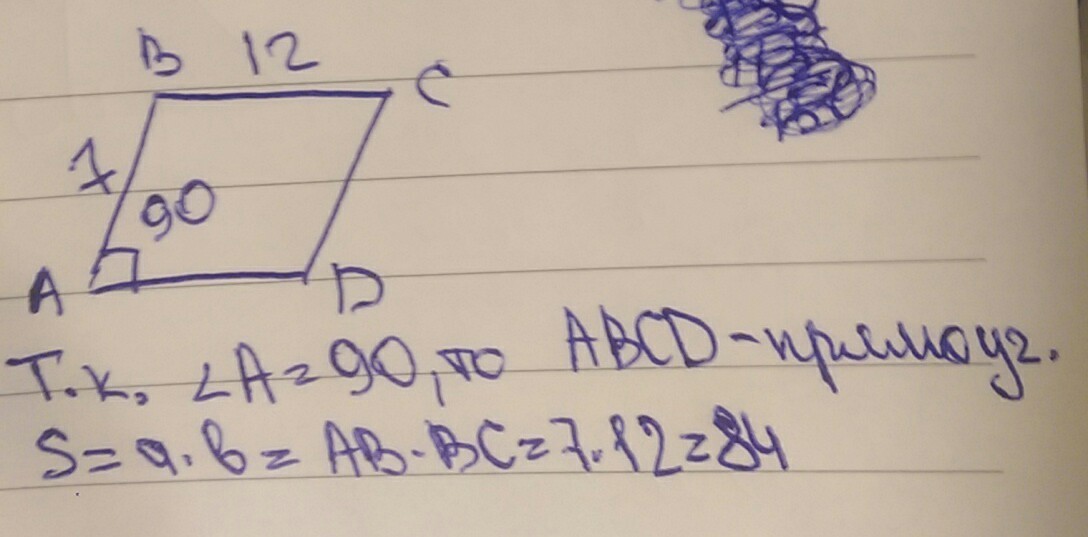 B 12 C
7
90
A D
Т.к. ∠A=90, то ABCD-прямоуг.
S=a·b=AB·BC=7·12=84